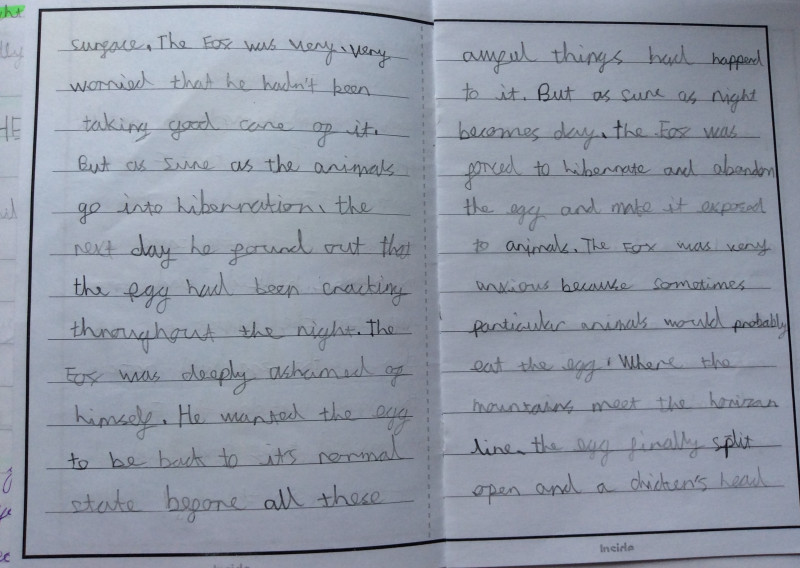 surface. The Fox was very, very
worried that he hadn't been
taking good care of it.
But as sure as the animals
go into hibernation, the
next day he found out that
the egg had been cracking
throughout the night. The
Fox was deeply ashamed of
himself. He wanted the egg
to be back to it's normal
state before all these
awful things had happend
to it. But as sure as night
becomes day, the Fox was
forced to hibernate and abandon
the egg and make it exposed
to animals. The Fox was very
anxious because sometimes
particular animals would probably
eat the egg. Where the
mountains meet the horizan
line, the egg finally split
open and a chicken's head